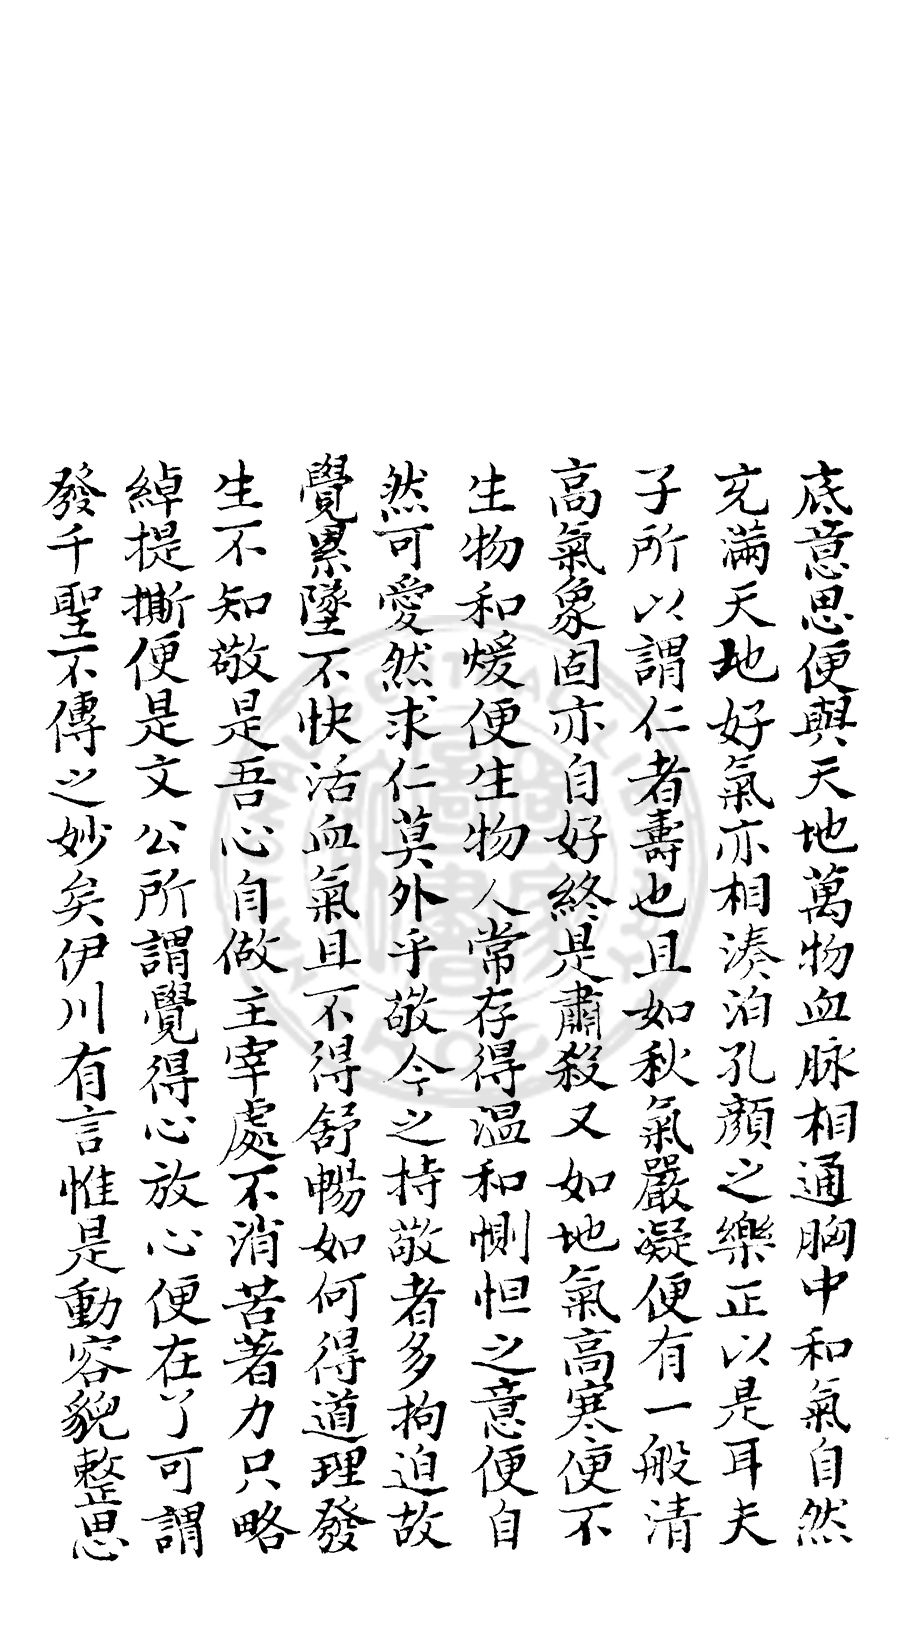 底意思便與天地萬物血脉相通胸中和氣自然
充滿天地好氣亦相湊泊孔顏之樂正以是耳夫
子所以謂仁者壽也且如秋氣嚴凝便有一般清
高氣象固亦自好終是肅殺又如地氣高寒便不
生物和煖便生物人常存得温和惻怛之意便自
然可愛然求仁莫外乎敬今之持敬者多拘迫故
覺累墜不快活血氣且不得舒暢如何得道理發
生不知敬是吾心自做主宰處不消苦著力只略
綽提撕便是文公所謂覺得心放心便在了可謂
發千聖不傳之妙矣伊川有言惟是動容貌整思